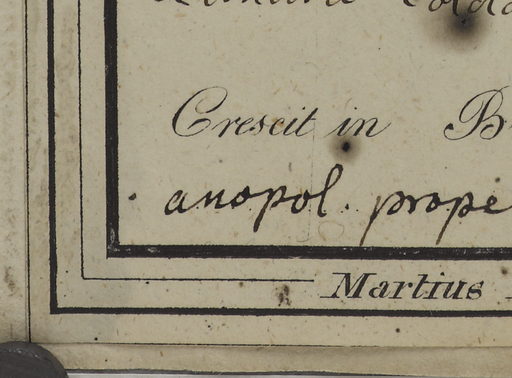 Crescit in B
anopol. prope
Martius